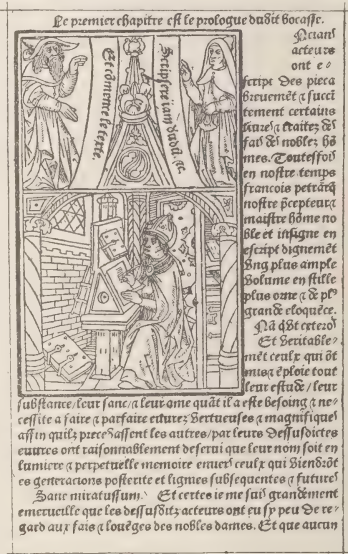 Le premier chapitre est le prologue dudit bocasse.
Scripsere iam dudū. ⁊c.
Et cōmence le texte.
Nciens
acteurs
ont e⸗
script des pieca
brieuemēt ⁊ succi
tement certains
liures ⁊ traitez des
fais des nobles hō
mes. Toutesfois
en nostre temps
francois petrarq̄
nostre p̄cepteur ⁊
maistre hōme no
ble et insigne en
escript dignemēt
Ung plus ample
volume en stille
plus orne ⁊ de pl⁹
grande eloquēce.
Nā q̄bꝰ ceteros
Et veritable⸗
mēt ceulx qui ōt
mis ⁊ ēploie tout
leur estude / leur
substance / leur sanc / ⁊ leur ame quāt il a este besoing ⁊ ne⸗
cessite a faire ⁊ parfaire euures vertueuses ⁊ magnifiques
affin quilz precedassent les autres / par leurs dessusdictes
euures ont raisonnablement deserui que leur nom soit en
lumiere ⁊ perpetuelle memoire enuers ceulx qui viendrōt
es generacions posterite et lignies subsequentes ⁊ futures
Sane miratus sum. Et certes ie me suis grandement
emerueille que les dessusditz acteurs ont eu sy peu de re⸗
gard aux fais ⁊ louēges des nobles dames. Et que aucun